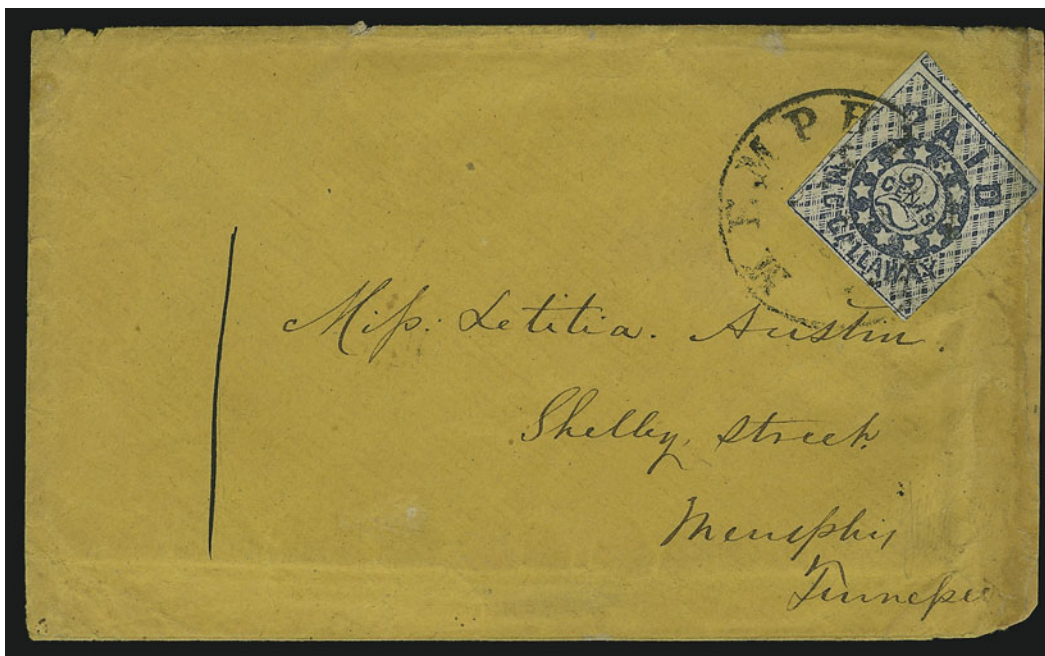 MEMPH
PAID
2
CENTS
M.C. CALLAWAY.
Miſs. Letitia. Austin.
Shelby, Street.
Memphis
Tenneſsee